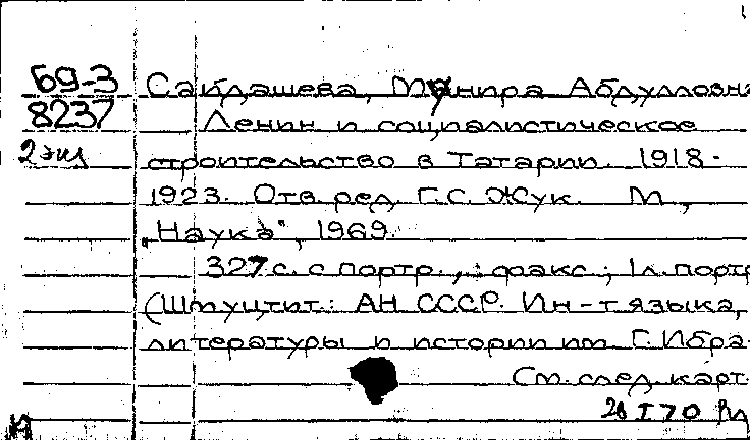 69-3 Сайдашева, Мунира Абдулловна
8237 Ленин и социалистическое
2 экз строительство в Татарии. 1918-
1923. Отв. ред. Г.С. Жук. М.,
„Наука", 1969.
327 с. с портр., факс; 1 л. портр
(Шмуцтит.: АН СССР. Ин-т языка,
литературы и истории им. Г. Ибра-
См. след. карт.
28 I 70